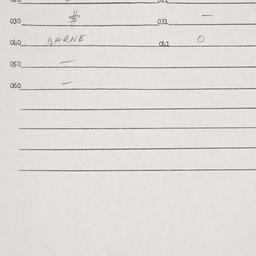 030 $ 031 —
040 BARNE 041 0
050 —
060 —